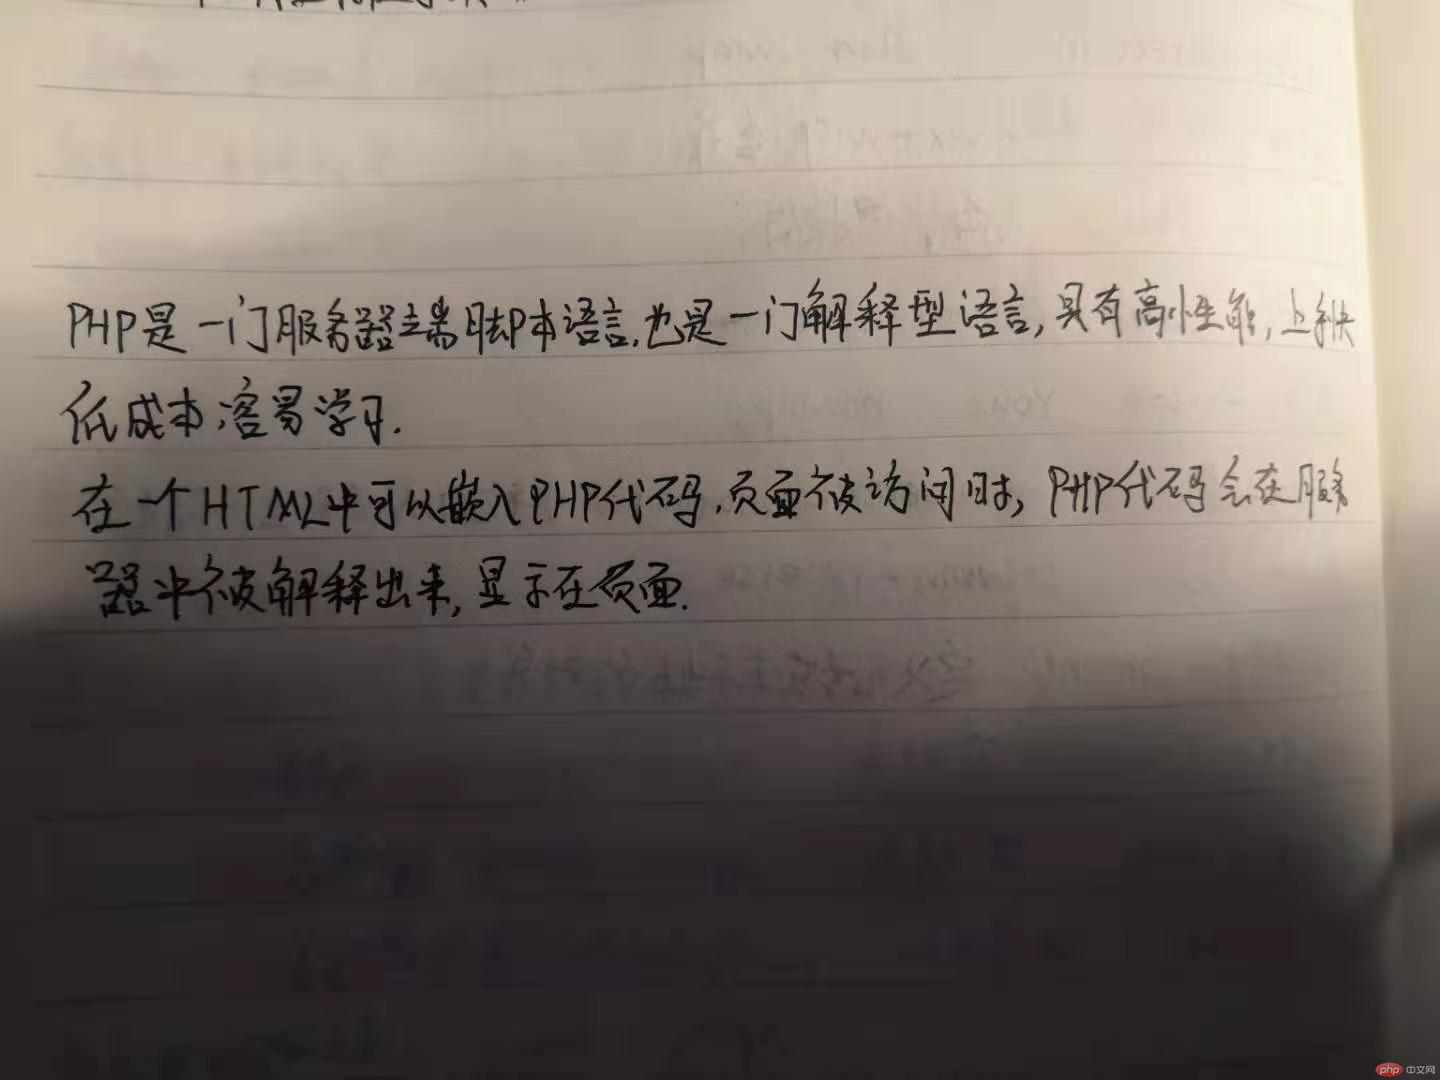 PHP是一门服务器端脚本语言,也是一门解释型语言,具有高性能,上手快
低成本,容易学习.
在一个HTML中可以嵌入PHP代码,页面被访问时,PHP代码会在服务
器中被解释出来,显示在页面.
php 中文网